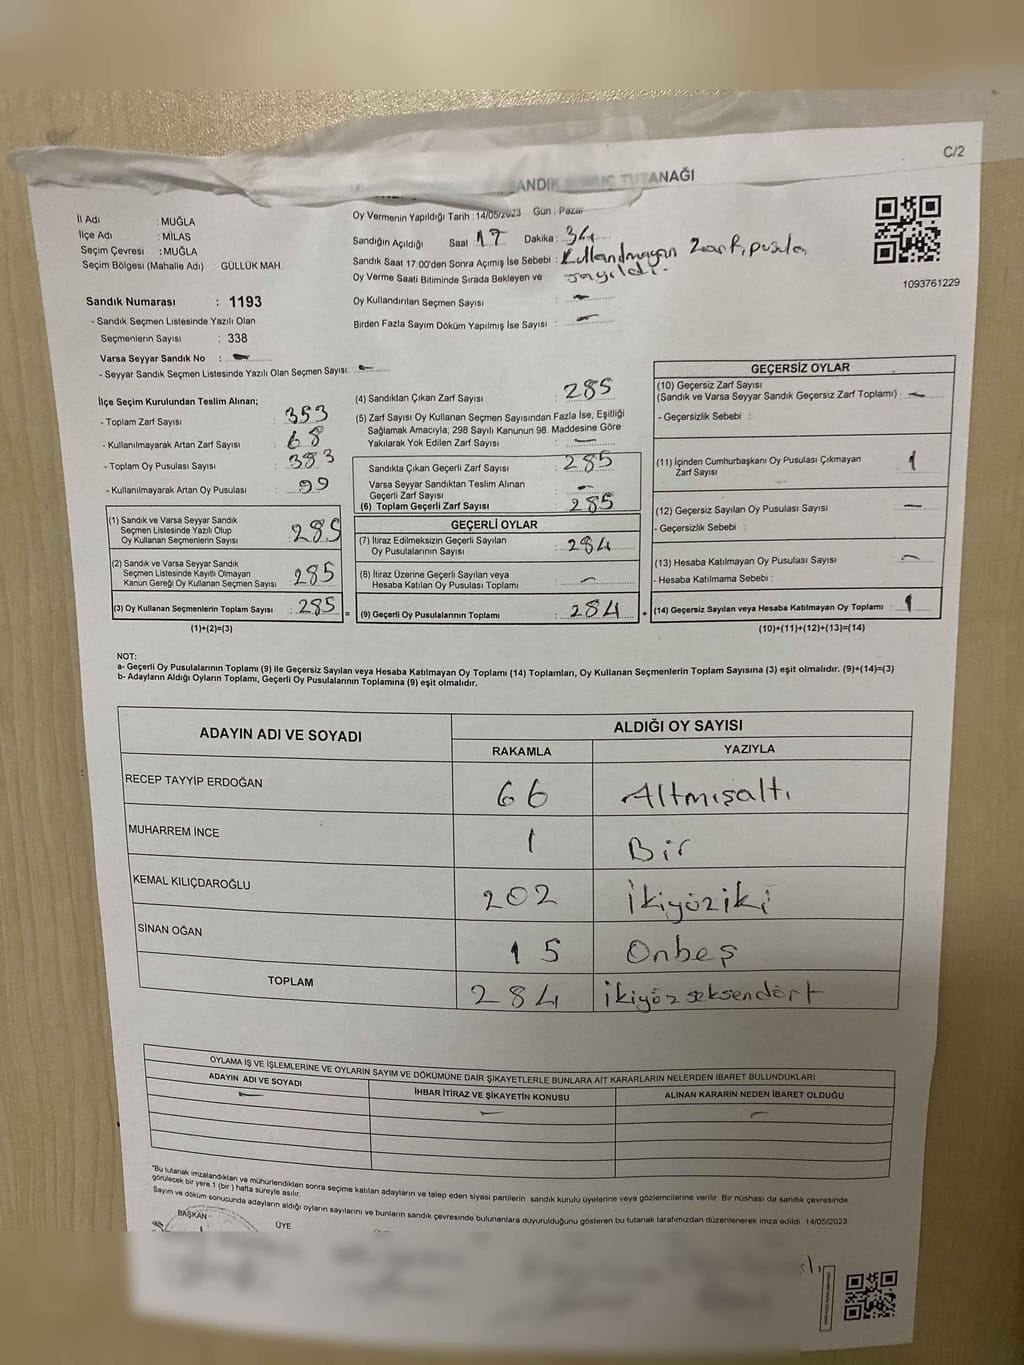 C/2
SANDIK SONUÇ TUTANAĞI
İl Adı : MUĞLA
İlçe Adı : MİLAS
Seçim Çevresi : MUĞLA
Seçim Bölgesi (Mahalle Adı) : GÜLLÜK MAH.
Sandık Numarası : 1193
- Sandık Seçmen Listesinde Yazılı Olan
Seçmenlerin Sayısı : 338
Varsa Seyyar Sandık No : -
- Seyyar Sandık Seçmen Listesinde Yazılı Olan Seçmen Sayısı: -
Oy Vermenin Yapıldığı Tarih : 14/05/2023 Gün : Pazar
Sandığın Açıldığı Saat 17 Dakika : 34
Sandık Saat 17:00'den Sonra Açımış İse Sebebi : Kullandmayan Zarf, pusula
Oy Verme Saati Bitiminde Sırada Bekleyen ve sayıldı.
Oy Kullandırılan Seçmen Sayısı : -
Birden Fazla Sayım Döküm Yapılmış İse Sayısı : -
1093761229
İlçe Seçim Kurulundan Teslim Alınan;
- Toplam Zarf Sayısı : 353
- Kullanılmayarak Artan Zarf Sayısı : 68
- Toplam Oy Pusulası Sayısı : 383
- Kullanılmayarak Artan Oy Pusulası : 99
(1) Sandık ve Varsa Seyyar Sandık
Seçmen Listesinde Yazılı Olup
Oy Kullanan Seçmenlerin Sayısı : 285
(2) Sandık ve Varsa Seyyar Sandık
Seçmen Listesinde Kayıtlı Olmayan
Kanun Gereği Oy Kullanan Seçmen Sayısı : 285
(3) Oy Kullanan Seçmenlerin Toplam Sayısı : 285 =
(1)+(2)=(3)
(4) Sandıktan Çıkan Zarf Sayısı : 285
(5) Zarf Sayısı Oy Kullanan Seçmen Sayısından Fazla İse, Eşitliği
Sağlamak Amacıyla; 298 Sayılı Kanunun 98. Maddesine Göre
Yakılarak Yok Edilen Zarf Sayısı : -
Sandıkta Çıkan Geçerli Zarf Sayısı : 285
Varsa Seyyar Sandıktan Teslim Alınan
Geçerli Zarf Sayısı : -
(6) Toplam Geçerli Zarf Sayısı : 285
GEÇERLİ OYLAR
(7) İtiraz Edilmeksizin Geçerli Sayılan
Oy Pusulalarının Sayısı : 284
(8) İtiraz Üzerine Geçerli Sayılan veya
Hesaba Katılan Oy Pusulası Toplamı : -
(9) Geçerli Oy Pusulalarının Toplamı : 284 +
GEÇERSİZ OYLAR
(10) Geçersiz Zarf Sayısı
(Sandık ve Varsa Seyyar Sandık Geçersiz Zarf Toplamı) : -
- Geçersizlik Sebebi :
(11) İçinden Cumhurbaşkanı Oy Pusulası Çıkmayan
Zarf Sayısı : 1
(12) Geçersiz Sayılan Oy Pusulası Sayısı : -
- Geçersizlik Sebebi :
(13) Hesaba Katılmayan Oy Pusulası Sayısı : -
- Hesaba Katılmama Sebebi :
(14) Geçersiz Sayılan veya Hesaba Katılmayan Oy Toplamı : 1
(10)+(11)+(12)+(13)=(14)
NOT:
a- Geçerli Oy Pusulalarının Toplamı (9) ile Geçersiz Sayılan veya Hesaba Katılmayan Oy Toplamı (14) Toplamları, Oy Kullanan Seçmenlerin Toplam Sayısına (3) eşit olmalıdır. (9)+(14)=(3)
b- Adayların Aldığı Oyların Toplamı, Geçerli Oy Pusulalarının Toplamına (9) eşit olmalıdır.
ADAYIN ADI VE SOYADI ALDIĞI OY SAYISI
RAKAMLA YAZIYLA
RECEP TAYYİP ERDOĞAN 66 Altmışaltı
MUHARREM İNCE 1 Bir
KEMAL KILIÇDAROĞLU 202 İkiyüziki
SİNAN OĞAN 15 Onbeş
TOPLAM 284 İkiyüzseksendört
OYLAMA İŞ VE İŞLEMLERİNE VE OYLARIN SAYIM VE DÖKÜMÜNE DAİR ŞİKAYETLERLE BUNLARA AİT KARARLARIN NELERDEN İBARET BULUNDUKLARI
ADAYIN ADI VE SOYADI İHBAR İTİRAZ VE ŞİKAYETİN KONUSU ALINAN KARARIN NEDEN İBARET OLDUĞU
- - -
"Bu tutanak imzalandıktan ve mühürlendikten sonra seçime katılan adayların ve talep eden siyasi partilerin sandık kurulu üyelerine veya gözlemcilerine verilir. Bir nüshası da sandık çevresinde
görülecek bir yere 1 (bir) hafta süreyle asılır.
Sayım ve döküm sonucunda adayların aldığı oyların sayılarını ve bunların sandık çevresinde bulunanlara duyurulduğunu gösteren bu tutanak tarafımızdan düzenlenerek imza edildi. 14/05/2023
BAŞKAN ÜYE